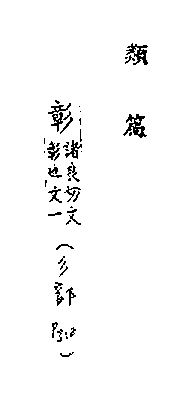 類篇
彰諸良切文
彰也文一
(彡部